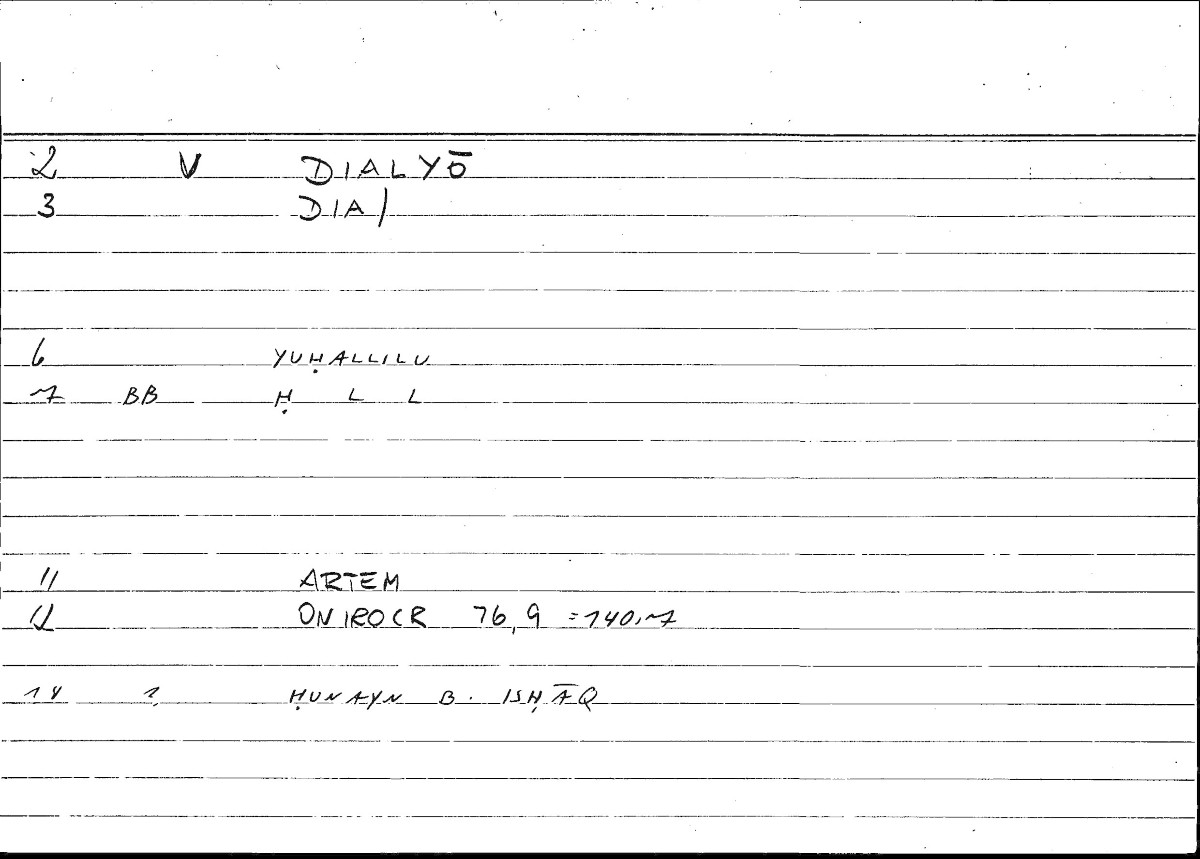 2 V DIALYŌ
3 DIA/
6 YUḤALLILU
7 BB Ḥ L L
11 ARTEM
12 ONIROCR 76,9 = 140,7
14 1, ḤUNAYN B. ISḤĀQ